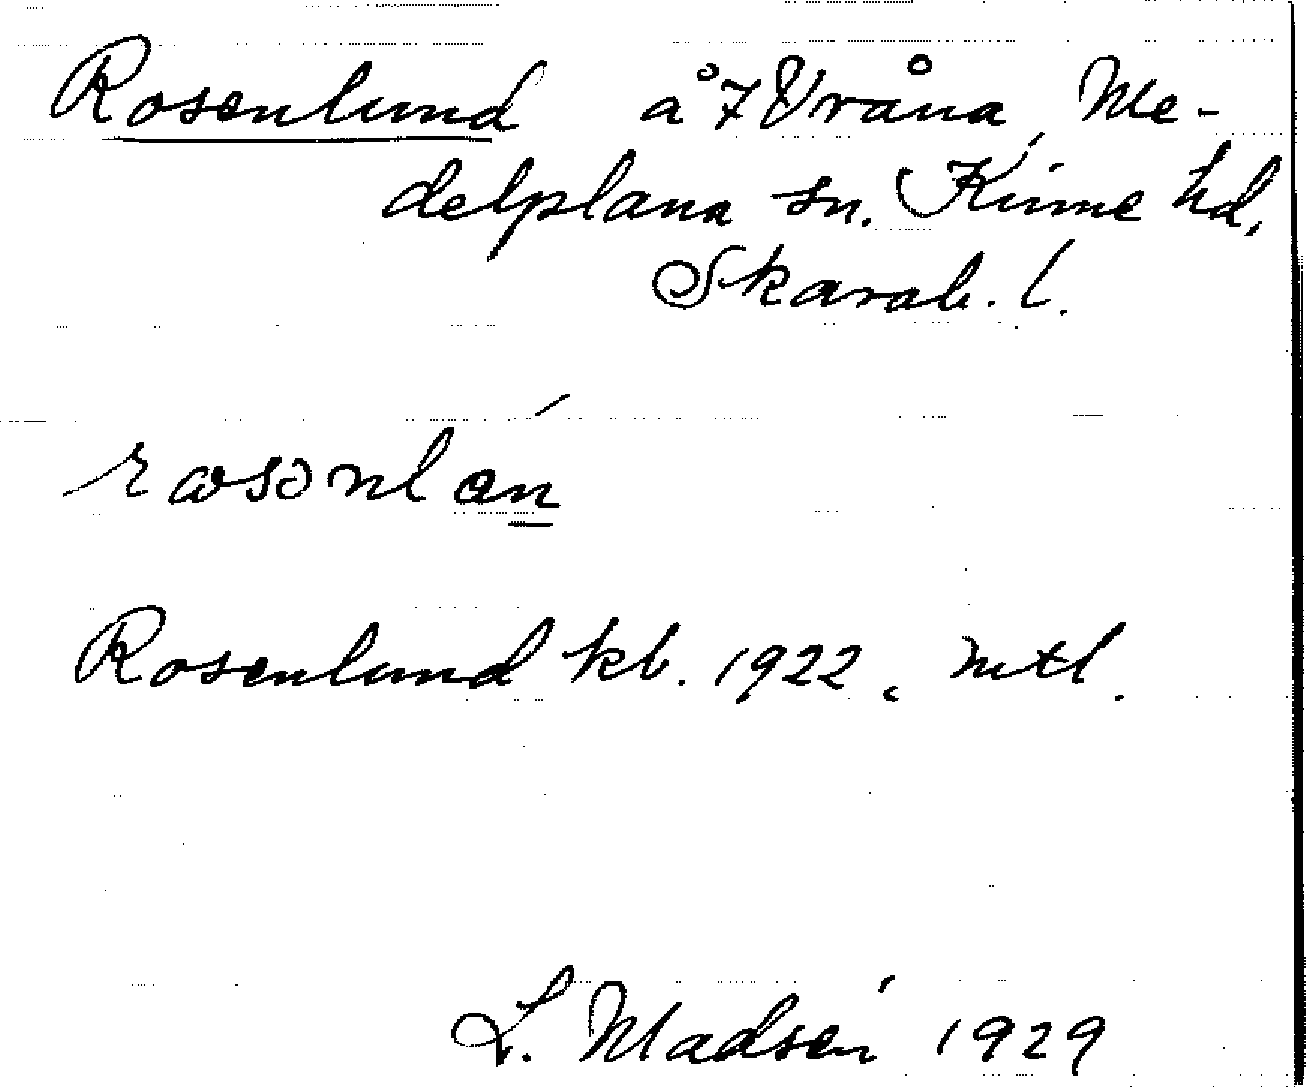 Rosenlund å 7 Vråna, Me-
delplana sn. Kinne hd,
Skarab. l.
rosɔnlan
Rosenlund kb. 1922, mtl.
L. Madsén 1929